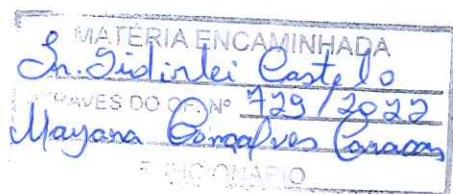 MATÉRIA ENCAMINHADA
Sr. Sidirlei Castelo
ATRAVÉS DO OF. Nº 729/2022
Mayana Gonçalves
FUNCIONÁRIO